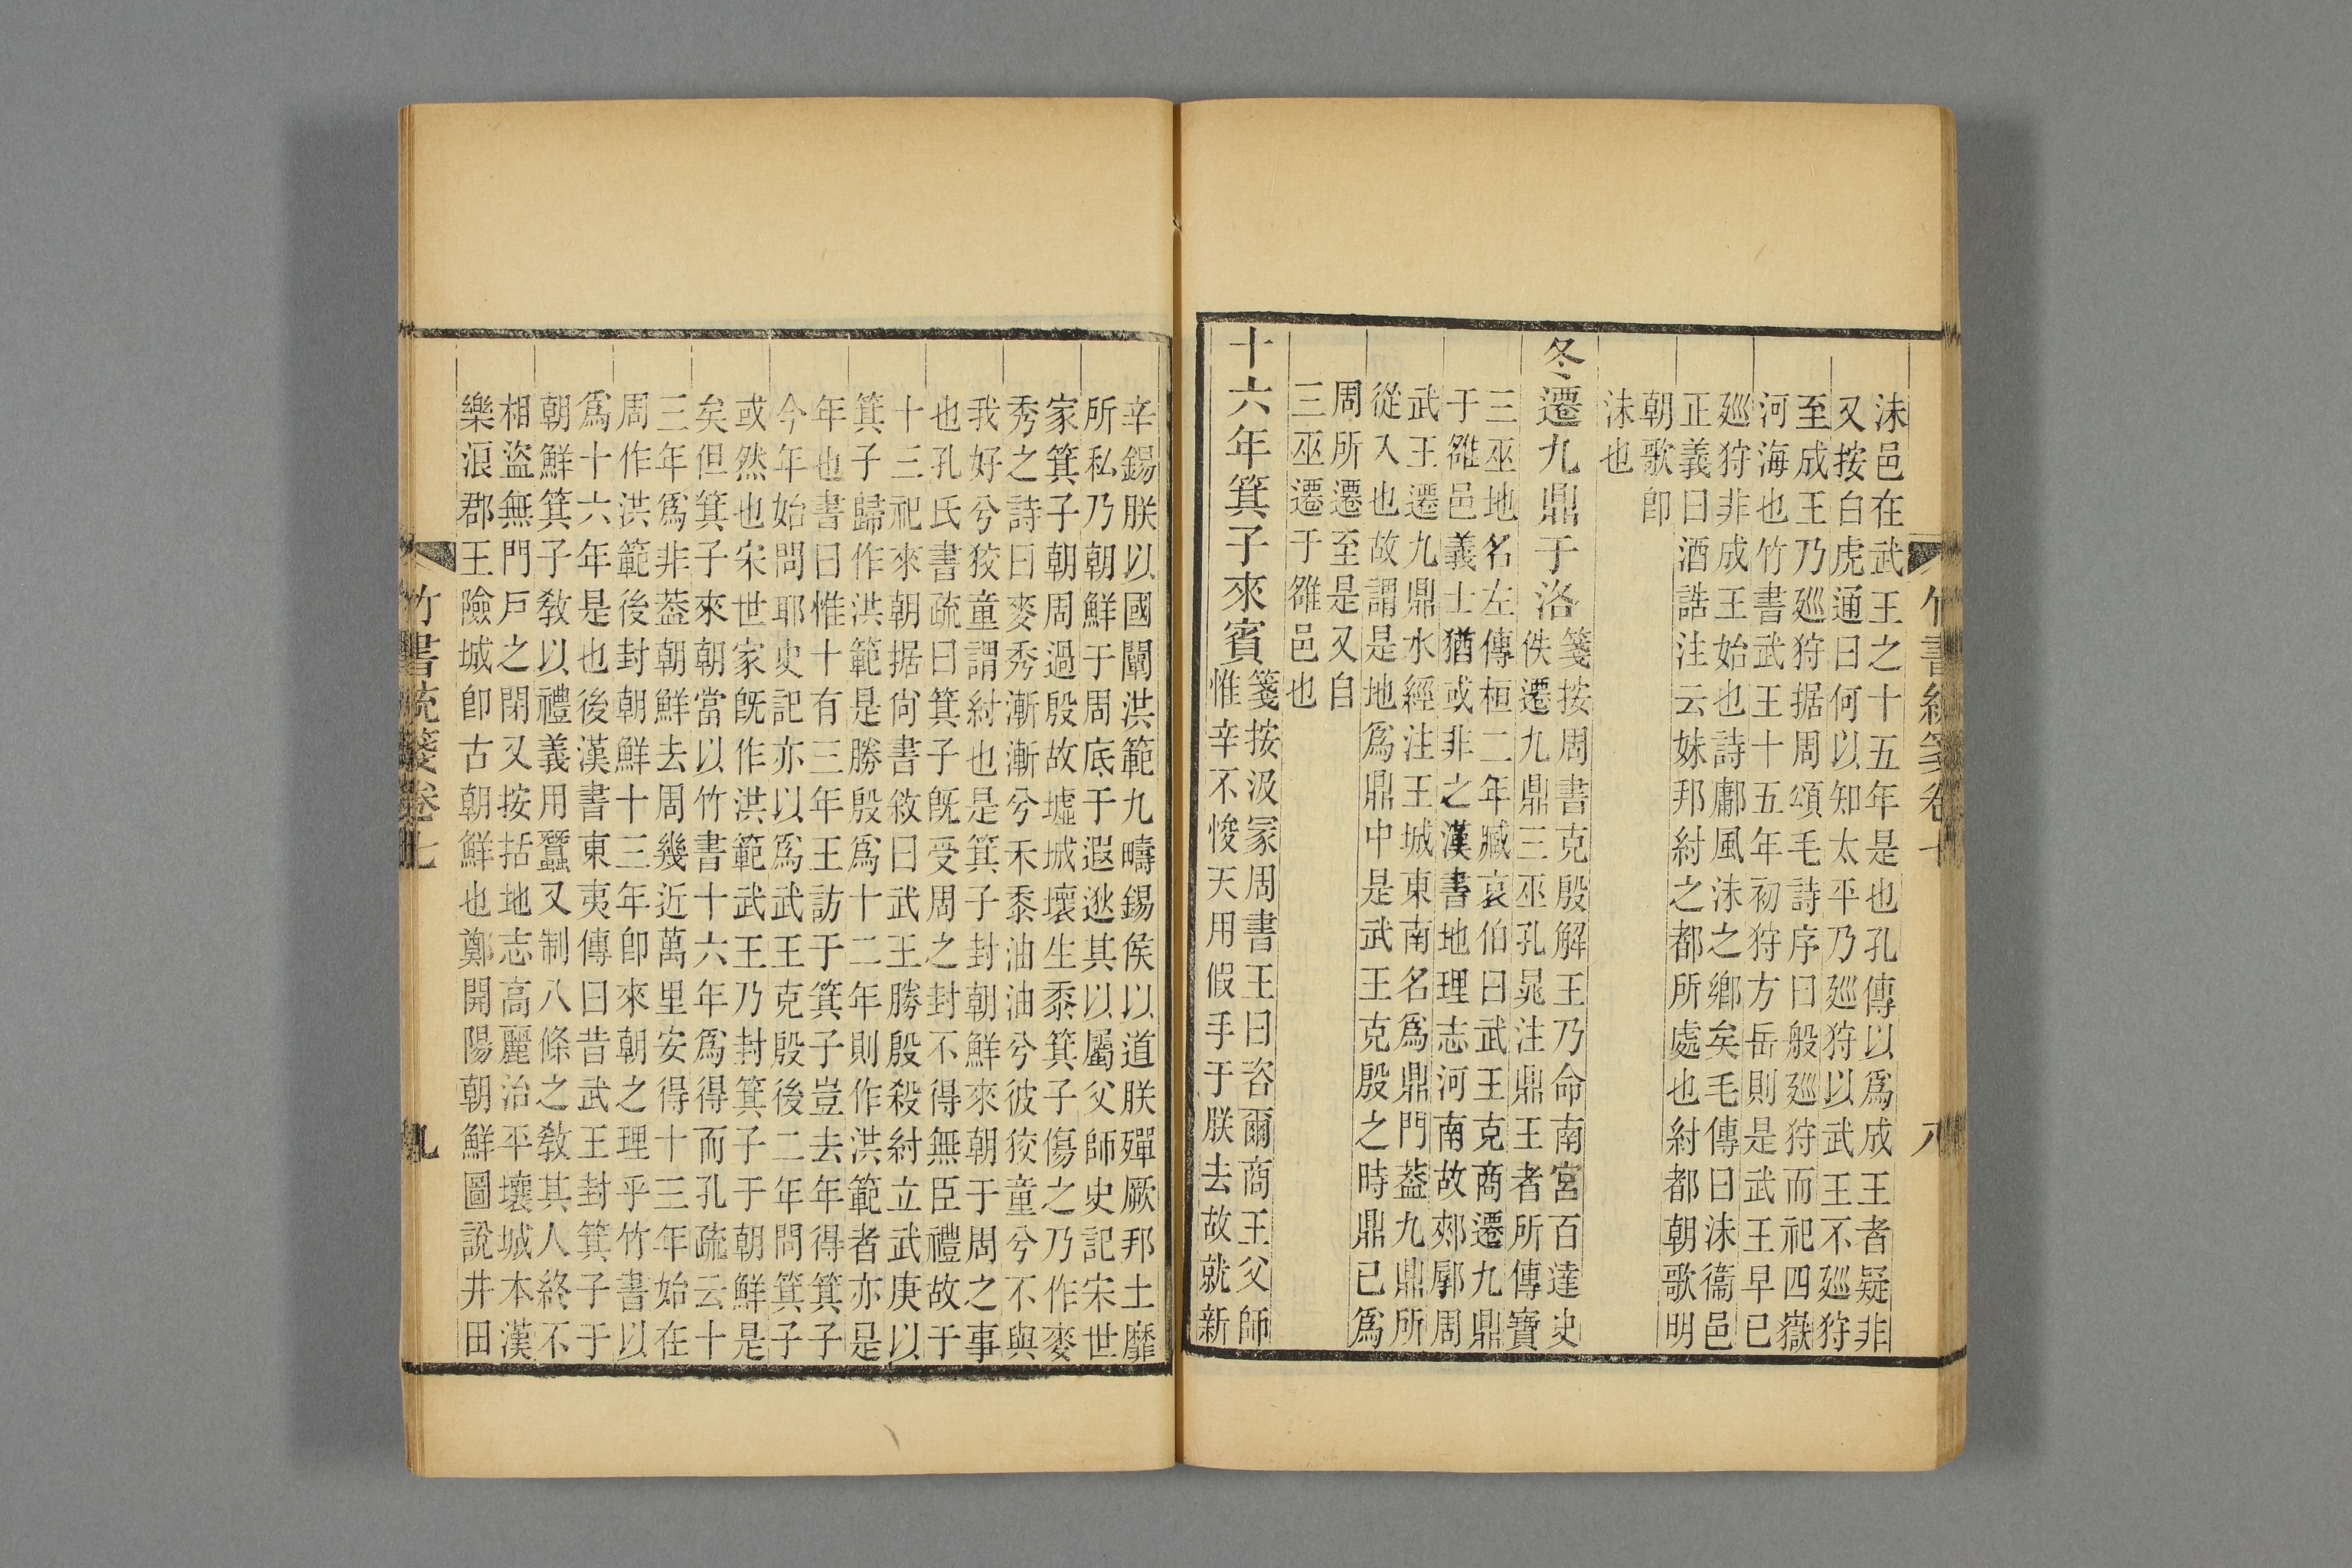 沬邑在武王之十五年是也孔傳以爲成王者疑非
又按白虎通曰何以知太平乃廵狩以武王不廵狩
至成王乃廵狩据周頌毛詩序曰般廵狩而祀四嶽
河海也竹書武王十五年初狩方岳則是武王早已
廵狩非成王始也詩鄘風沬之鄉矣毛傳曰沬衞邑
正義曰酒誥注云妹邦紂之都所處也紂都朝歌明
朝歌卽
沬也
冬遷九鼎于洛
箋按周書克殷解王乃命南宮百達史
佚遷九鼎三巫孔晁注鼎王者所傳寶
三巫地名左傳桓二年臧哀伯曰武王克商遷九鼎
于雒邑義士猶或非之漢書地理志河南故郟鄏周
武王遷九鼎水經注王城東南名爲鼎門葢九鼎所
從入也故謂是地爲鼎中是武王克殷之時鼎已爲
周所遷至是又自
三巫遷于雒邑也
十六年箕子來賓
箋按汲冢周書王曰咨爾商王父師
惟辛不悛天用假手于朕去故就新
竹書統箋卷七
八
辛錫朕以國闡洪範九疇錫侯以道朕殫厥邦土靡
所私乃朝鮮于周底于遐逖其以屬父師史記宋世
家箕子朝周過殷故墟城壞生黍箕子傷之乃作麥
秀之詩曰麥秀漸漸兮禾黍油油兮彼狡童兮不與
我好兮狡童謂紂也是箕子封朝鮮來朝于周之事
也孔氏書疏曰箕子旣受周之封不得無臣禮故于
十三祀來朝据尙書敘曰武王勝殷殺紂立武庚以
箕子歸作洪範是勝殷爲十二年則作洪範者亦是
年也書曰惟十有三年王訪于箕子豈去年得箕子
今年始問耶史記亦以爲武王克殷後二年問箕子
或然也宋世家旣作洪範武王乃封箕子于朝鮮是
矣但箕子來朝當以竹書十六年爲得而孔疏云十
三年爲非葢朝鮮去周幾近萬里安得十三年始在
周作洪範後封朝鮮十三年卽來朝之理乎竹書以
爲十六年是也後漢書東夷傳曰昔武王封箕子于
朝鮮箕子敎以禮義用蠶又制八條之敎其人終不
相盜無門戶之閉又按括地志高麗治平壤城本漢
樂浪郡王險城卽古朝鮮也鄭開陽朝鮮圖說井田
竹書統箋卷七
九